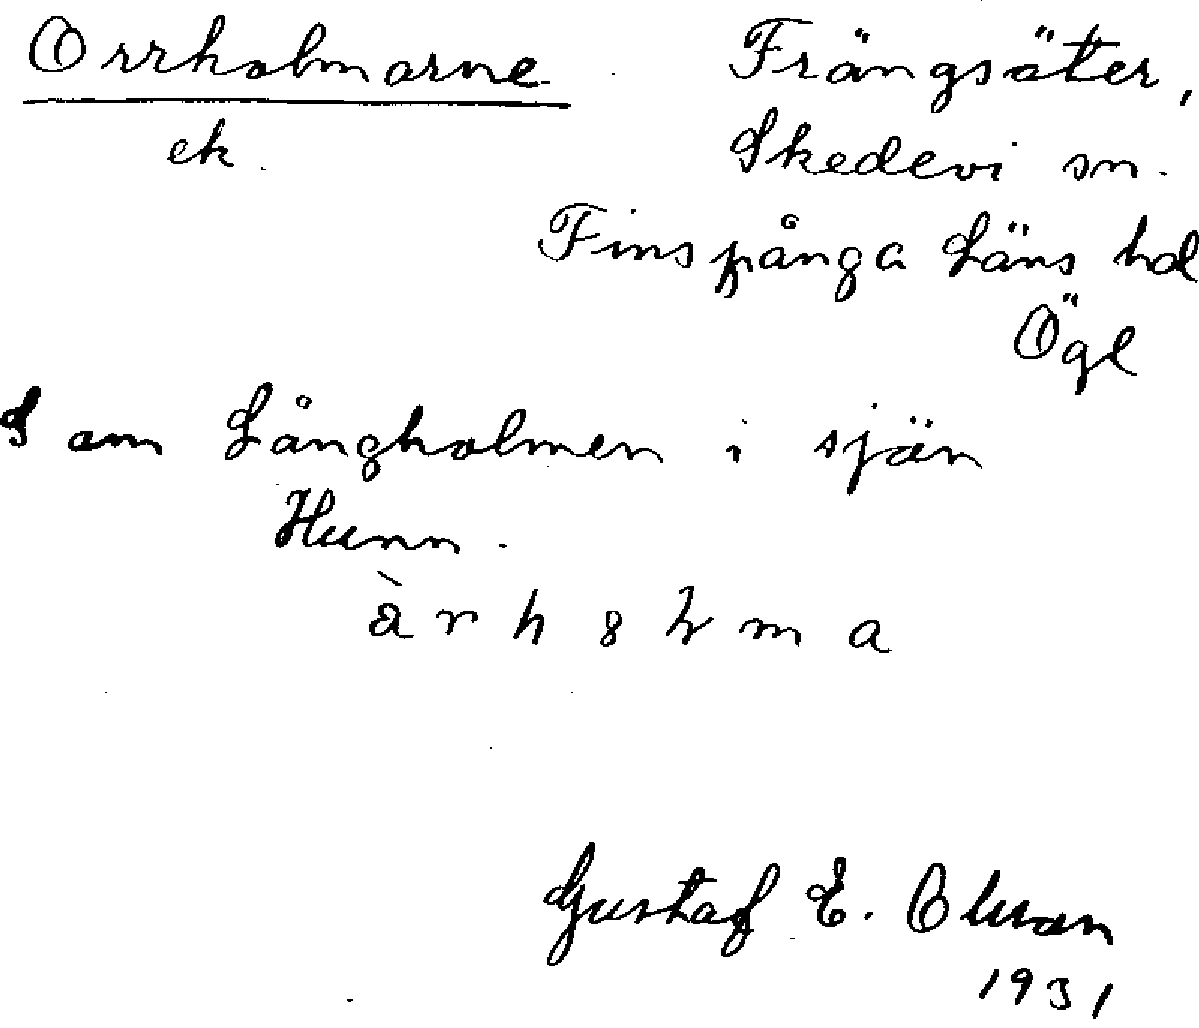 Orrholmarne Frängsäter,
ek. Skedevi sn.
Finspånga Läns hd
Ögl
S om Långholmen i sjön
Hunn.
Gustaf E. Olsson
1931